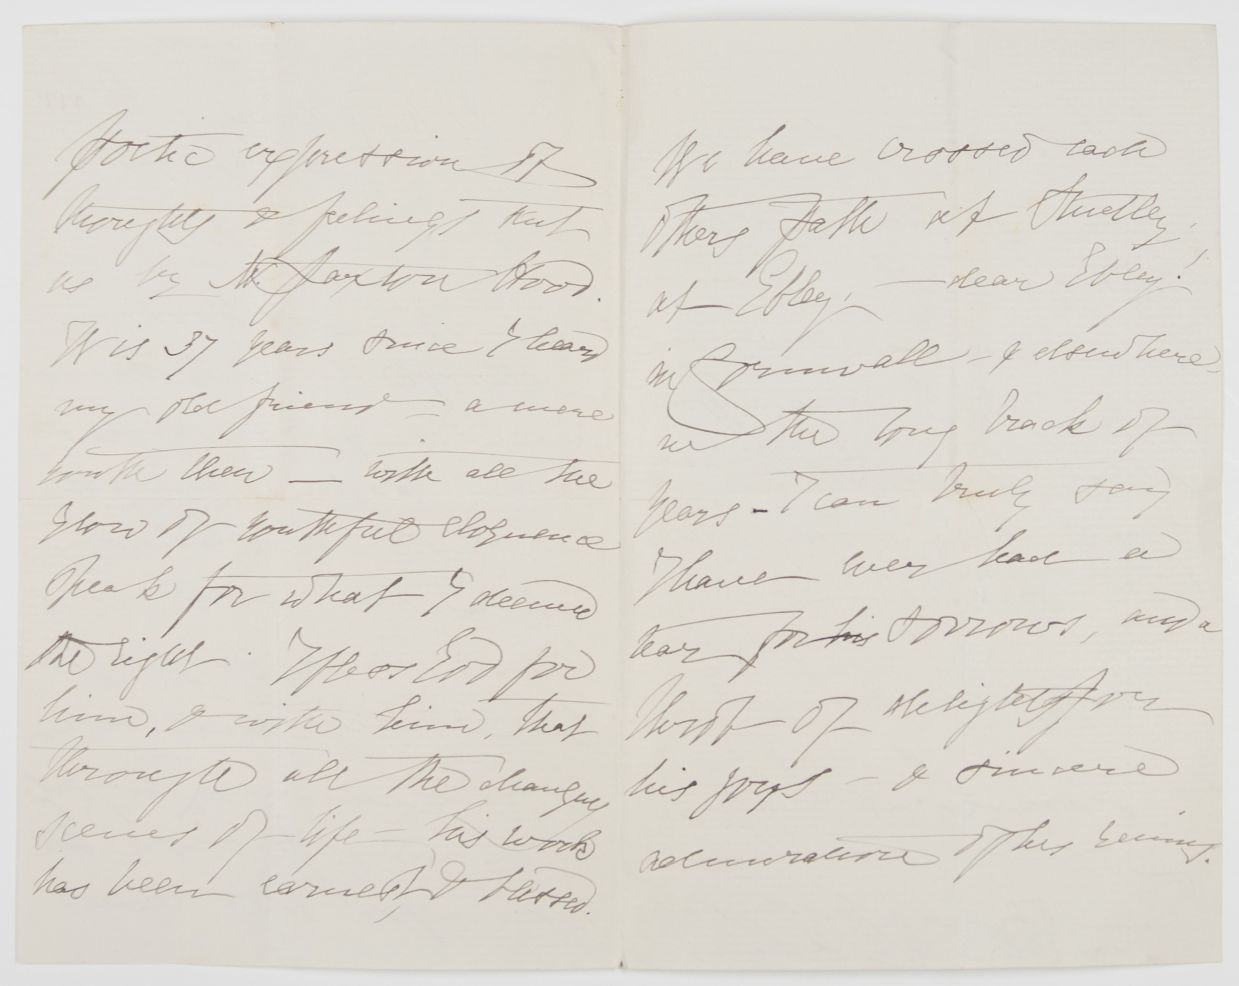 poetic expression of
thoughts & feelings sent
us by Mr Paxton Hood.
It is 37 years since I heard
my old friend – a mere
youth then — with all the
glow of youthful eloquence
speak for what I deemed
the right. I bless God for
him, & with him, that
through all the changing
scenes of life – his work
has been earnest, & blessed.
We have crossed each
others path at
at Ebley, — dear Ebley!
in Cornwall – & elsewhere,
in the long track of
years – I can truly say
I have ever had a
tear for his sorrows, and a
throb of delight for
his joys – & sincere
admiration of his genius.